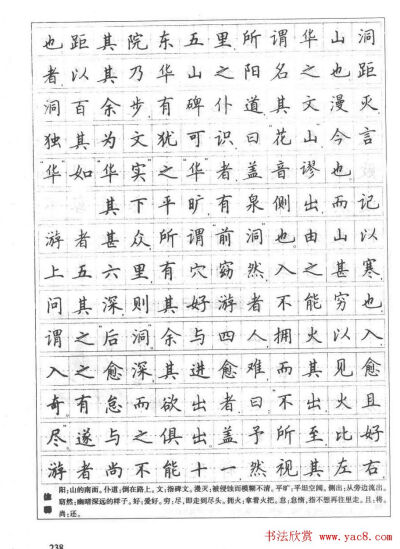 也距其院东五里所谓华山洞
者以其乃华山之阳名之也距
洞百余步有碑仆道其文漫灭
独其为文犹可识曰“花山”今言
“华”如“华实”之“华”者盖音谬也
其下平旷有泉侧出而记
游者甚众所谓“前洞”也由山以
上五六里有穴窈然入之甚寒
问其深则其好游者不能穷也
谓之“后洞”余与四人拥火以入
入之愈深其进愈难而其见愈
奇有怠而欲出者曰“不出火且
尽”遂与之俱出盖予所至比好
游者尚不能十一然视其左右
阳:山的南面。仆道:倒在路上。文:指碑文。漫灭:被侵蚀而模糊不清。平旷:平坦空阔。侧出:从旁边流出。
窈然:幽暗深远的样子。好:爱好。穷:尽,即走到尽头。拥火:拿着火把。怠:怠惰,指不想再往里走。且:将。
尚:还。
238
书法欣赏
www.yac8.com